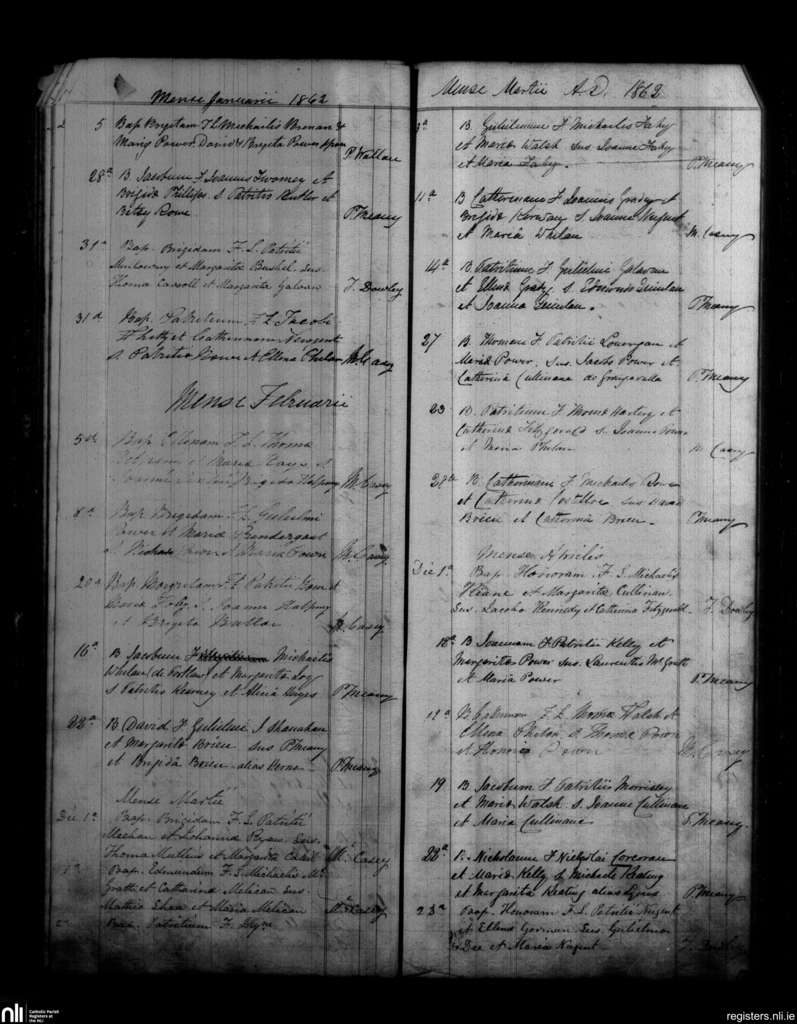 Mense Januarii 1862
5 Bap Brigetam F L Michaelis Brenan &
Mariæ Power, David & Brigeta Power spon
P. Wallace
28ª B Jacobum F Joannis Twomey et
Brigida Phillips. S Patritio Butler et
Betsy Rowe
P. Meany
31ª Bap. Brigidam F. L. Patritii
et Margarita Bushel. Sus.
Thoma Carroll et Margarita Galvan
T. Dowley
31ª Bap. Patritium F. L. Jacobi
et Catherinam Nugent
S Patritio Power et Ellena Phelan
M. Casey
Mense Februarii
5 Bap Ellenam F. L. Thoma
et Maria Hays S
Brigeta Halpiny
M. Casey
8ª Bap Brigidam F L Gulielmi
Power et Maria Prendergast
S Richardo Power et Maria Power
M. Casey
20ª Bap Margretam F L Patritii Gom et
Maria Foley. S. Joanne Halpiny
et Brigeta Wallar
M. Casey
16ª B Jacobum F Michaelis
Whelan (de Portlaw) et Margarita Foy
S Patritio Kearney et Alicia Hayes
P. Meany
22ª B David F Gulielmi J Shanahan
et Margarita Brien sus P Meany
et Brigida Brien alias Herne
P. Meany
Mense Martii
Die 1ª Bap. Brigidam F. L. Patritii
Meehan et Johanna Ryan. Sus.
Thoma Mullins et Margarita
M. Casey
1ª Bap. Edmundum F. L. Michaelis Mc
Grath et Catharina Melican sus.
Mathia Shea et Maria Melican
M. Casey
Bap. Patritium F. L.
Mense Martii A.D. 1862
B. Gulielmum F Michaelis Fahy
et Maria Walsh sus Joanne Fahy
et Maria Fahy.
P. Meany
11ª B Catherinam F Joannis Grady et
Brigida Kirwan S Joanne Nugent
et Maria Whelan
M. Casey
14ª B. Patritium F Gulielmi Galavan
et Ellena Grady S Edmundo Quinlan
et Joanna Quinlan.
P Meany
27 B. Thomam F. Patritii Lonergan et
Maria Power. Sus. Jacobo Power et
Catherina Cullinane de Graigavalla
P. Meany
23 B. Patritium F Thoma Hartery et
Catherina Fitzgerald S. Joanne Power
et Maria Phelan
M. Casey
27ª B. Catherinam F Michaelis Power
et Catherina Costelloe sus David
Brien et Catherina Brien.
P Meany
Mense Aprilis
Die 1ª Bap. Honoram. F. L. Michaelis
Keane et Margarita Cullinan.
Sus. Jacobo Kennedy et Catherina Fitzgerald.
T. Dowley
18ª B Joannam F Patritii Kelly et
Margarita Power sus. Laurentio McGrath
et Maria Power
P. Meany
18ª B F L Thoma Walsh et
Ellena Phelan S Thoma Power
et Honoria Power
M. Casey
19 B. Jacobum F Patritii Morrissey
et Maria Walsh. S. Joanne Cullinane
et Maria Cullinane
P. Meany.
22ª B. Nicholaum F Nicholai Corcoran
et Maria Kelly S Michaele Keating
et Margarita Keating alias Lyons
P. Meany
23ª Bap. Honoram F. L. Patritii Nugent
et Ellena Gorman. Sus. Gulielmo
Dee et Maria Nugent
T. Dowley
nli
Catholic Parish
Registers at
the NLI
registers.nli.ie